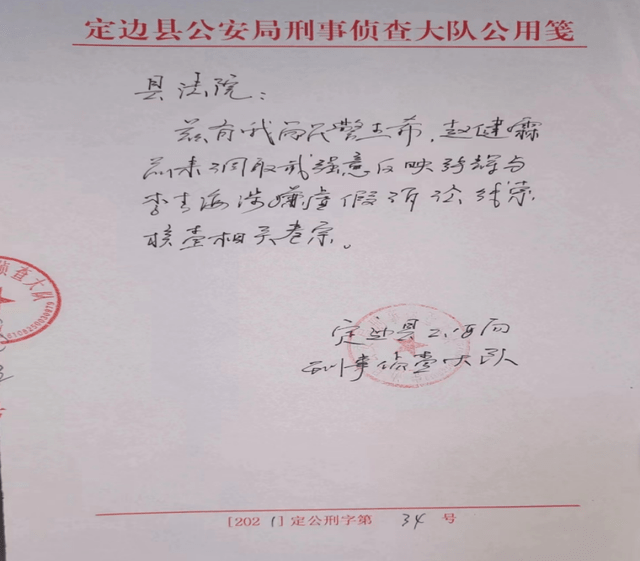 定边县公安局刑事侦查大队公用笺
县法院：
兹有我局民警王希、赵健霖
前来调取武强意反映张辉与
李青海涉嫌虚假诉讼线索
核查相关卷宗。
侦查大队
定边县公安局
刑事侦查大队
[2021]定公刑字第 34 号